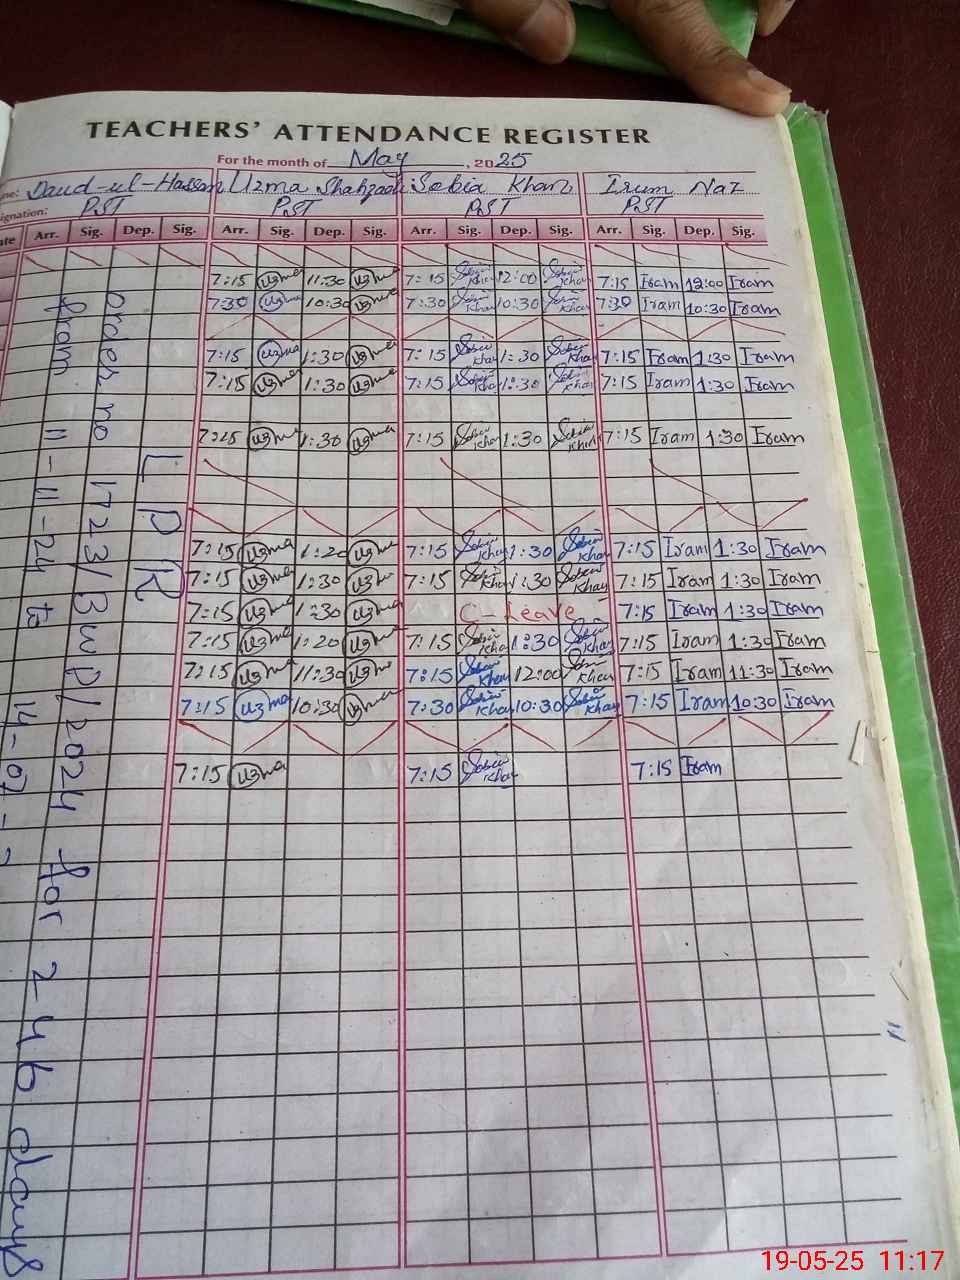 TEACHERS' ATTENDANCE REGISTER
For the month of May, 2025
Daud-ul-Hassan Uzma Shahzadi Sobia Khan Irum Naz
signation: PST PST PST PST
Arr. Sig. Dep. Sig. Arr. Sig. Dep. Sig. Arr. Sig. Dep. Sig. Arr. Sig. Dep. Sig.
7:15 Uzma 11:30 Uzma 7:15 Sobia Khan 12:00 Sobia Khan 7:15 Iram 12:00 Iram
7:30 Uzma 10:30 Uzma 7:30 Sobia Khan 10:30 Sobia Khan 7:30 Iram 10:30 Iram
7:15 Uzma 1:30 Uzma 7:15 Sobia Khan 1:30 Sobia Khan 7:15 Iram 1:30 Iram
7:15 Uzma 1:30 Uzma 7:15 Sobia Khan 1:30 Sobia Khan 7:15 Iram 1:30 Iram
7:15 Uzma 1:30 Uzma 7:15 Sobia Khan 1:30 Sobia Khan 7:15 Iram 1:30 Iram
7:15 Uzma 1:20 Uzma 7:15 Sobia Khan 1:30 Sobia Khan 7:15 Iram 1:30 Iram
7:15 Uzma 1:30 Uzma 7:15 Sobia Khan 1:30 Sobia Khan 7:15 Iram 1:30 Iram
7:15 Uzma 1:30 Uzma C-Leave 7:15 Iram 1:30 Iram
7:15 Uzma 1:20 Uzma 7:15 Sobia Khan 1:30 Sobia Khan 7:15 Iram 1:30 Iram
7:15 Uzma 11:30 Uzma 7:15 Sobia Khan 12:00 Sobia Khan 7:15 Iram 11:30 Iram
7:15 Uzma 10:30 Uzma 7:30 Sobia Khan 10:30 Sobia Khan 7:15 Iram 10:30 Iram
7:15 Uzma 7:15 Sobia Khan 7:15 Iram
LPR
order no 1723/BWP/2024 for 246 days
from 11-11-24 to
14-07-
19-05-25 11:17